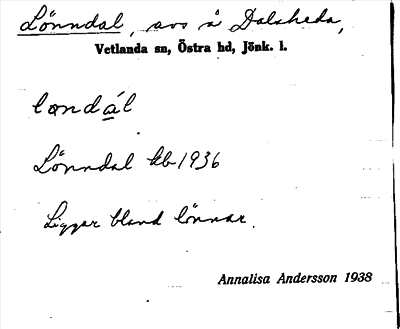 Lönndal, avs å Dalsheda,
Vetlanda sn, Östra hd, Jönk. l.
lœndál
Lönndal kb 1936
Ligger bland lönnar.
Annalisa Andersson 1938